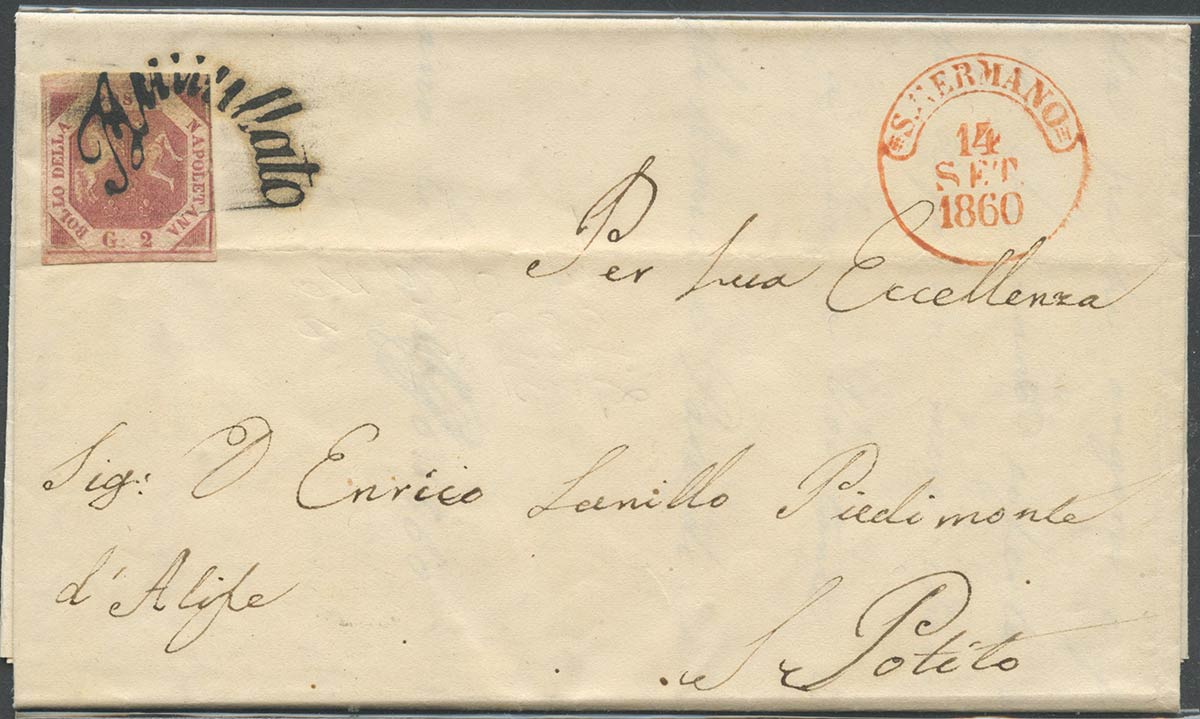 Annullato
BOLLO DELLA
NAPOLETANA
G. 2
S. GERMANO
14
SET
1860
Per Sua Eccellenza
Sig: D Enrico Sanillo Piedimonte
d'Alife
S Potito